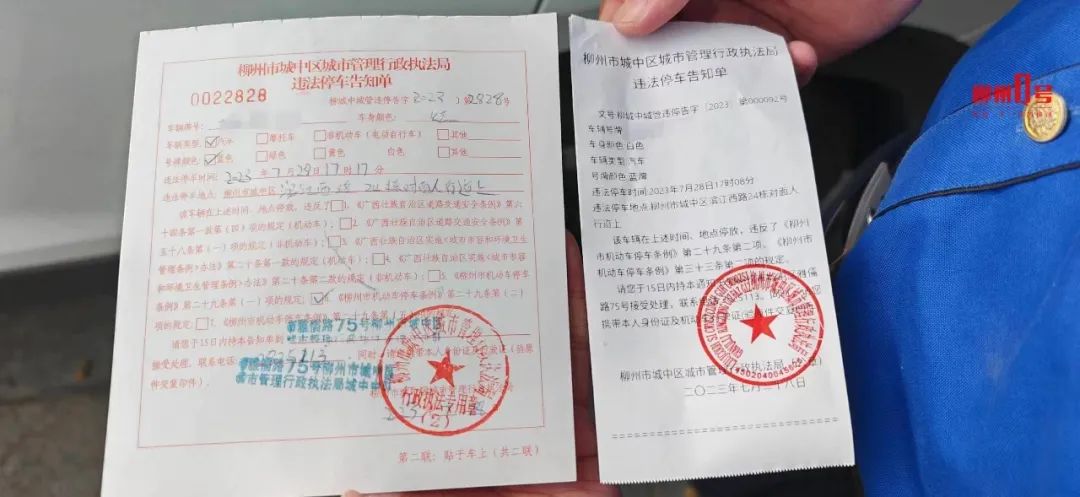 柳州市城中区城市管理行政执法局
违法停车告知单
0022828
柳城中城管违停告字 2023 828号
车辆牌号:
车身颜色:
车辆类型: 汽车 摩托车 非机动车(电动自行车) 其他
号牌颜色: 蓝色 绿色 黄色 白色 其他
违法停车时间: 2023年7月28日17时17分
违法停车地点: 柳州市城中区滨江西路24栋对面人行道上
该车辆在上述时间、地点停放,违反了 1.《广西壮族自治区道路交通安全条例》第六
十四条第一款(四)项的规定(机动车); 2.《广西壮族自治区道路交通安全条例》第
五十八条第(一)项的规定(非机动车); 3.《广西壮族自治区实施《城市市容和环境卫生
管理条例》办法》第二十条第一款的规定(机动车); 4.《广西壮族自治区实施《城市市容
和环境卫生管理条例》办法》第二十条第二款的规定(非机动车); 5.《柳州市机动车停车
条例》第二十九条第(一)项的规定; 《柳州市机动车停车条例》第二十九条第(二)
项的规定; 7.《柳州市机动车停车条例》第二十九条第
请您于15日内持本告知单到
雅儒路75号柳州市城中区
接受处理。联系电话: 2825113 同时请携带本人身份证及
雅儒路75号柳州市城中区
城市管理行政执法局城中中队
件交复印件)。
行政执法专用章
(2)
第二联:贴于车上(共二联)
柳州市城中区城市管理行政执法局
违法停车告知单
文号柳城中城管违停告字〔2023〕第000092号
车辆号牌
车身颜色 白色
车辆类型 汽车
号牌颜色 蓝牌
违法停车时间2023年7月28日17时08分
违法停车地点柳州市城中区滨江西路24栋对面人
行道上
该车辆在上述时间、地点停放,违反了《柳州市
机动车停车条例》第二十九条第二项、《柳州市
机动车停车条例》第三十三条第二项的规定。
请您于15日内持本通知
路75号接受处理,联系 5113。
携带本人身份证及机动
柳州市城中区城市管理行政执法局
二〇二三年七月二十八日
柳州1号